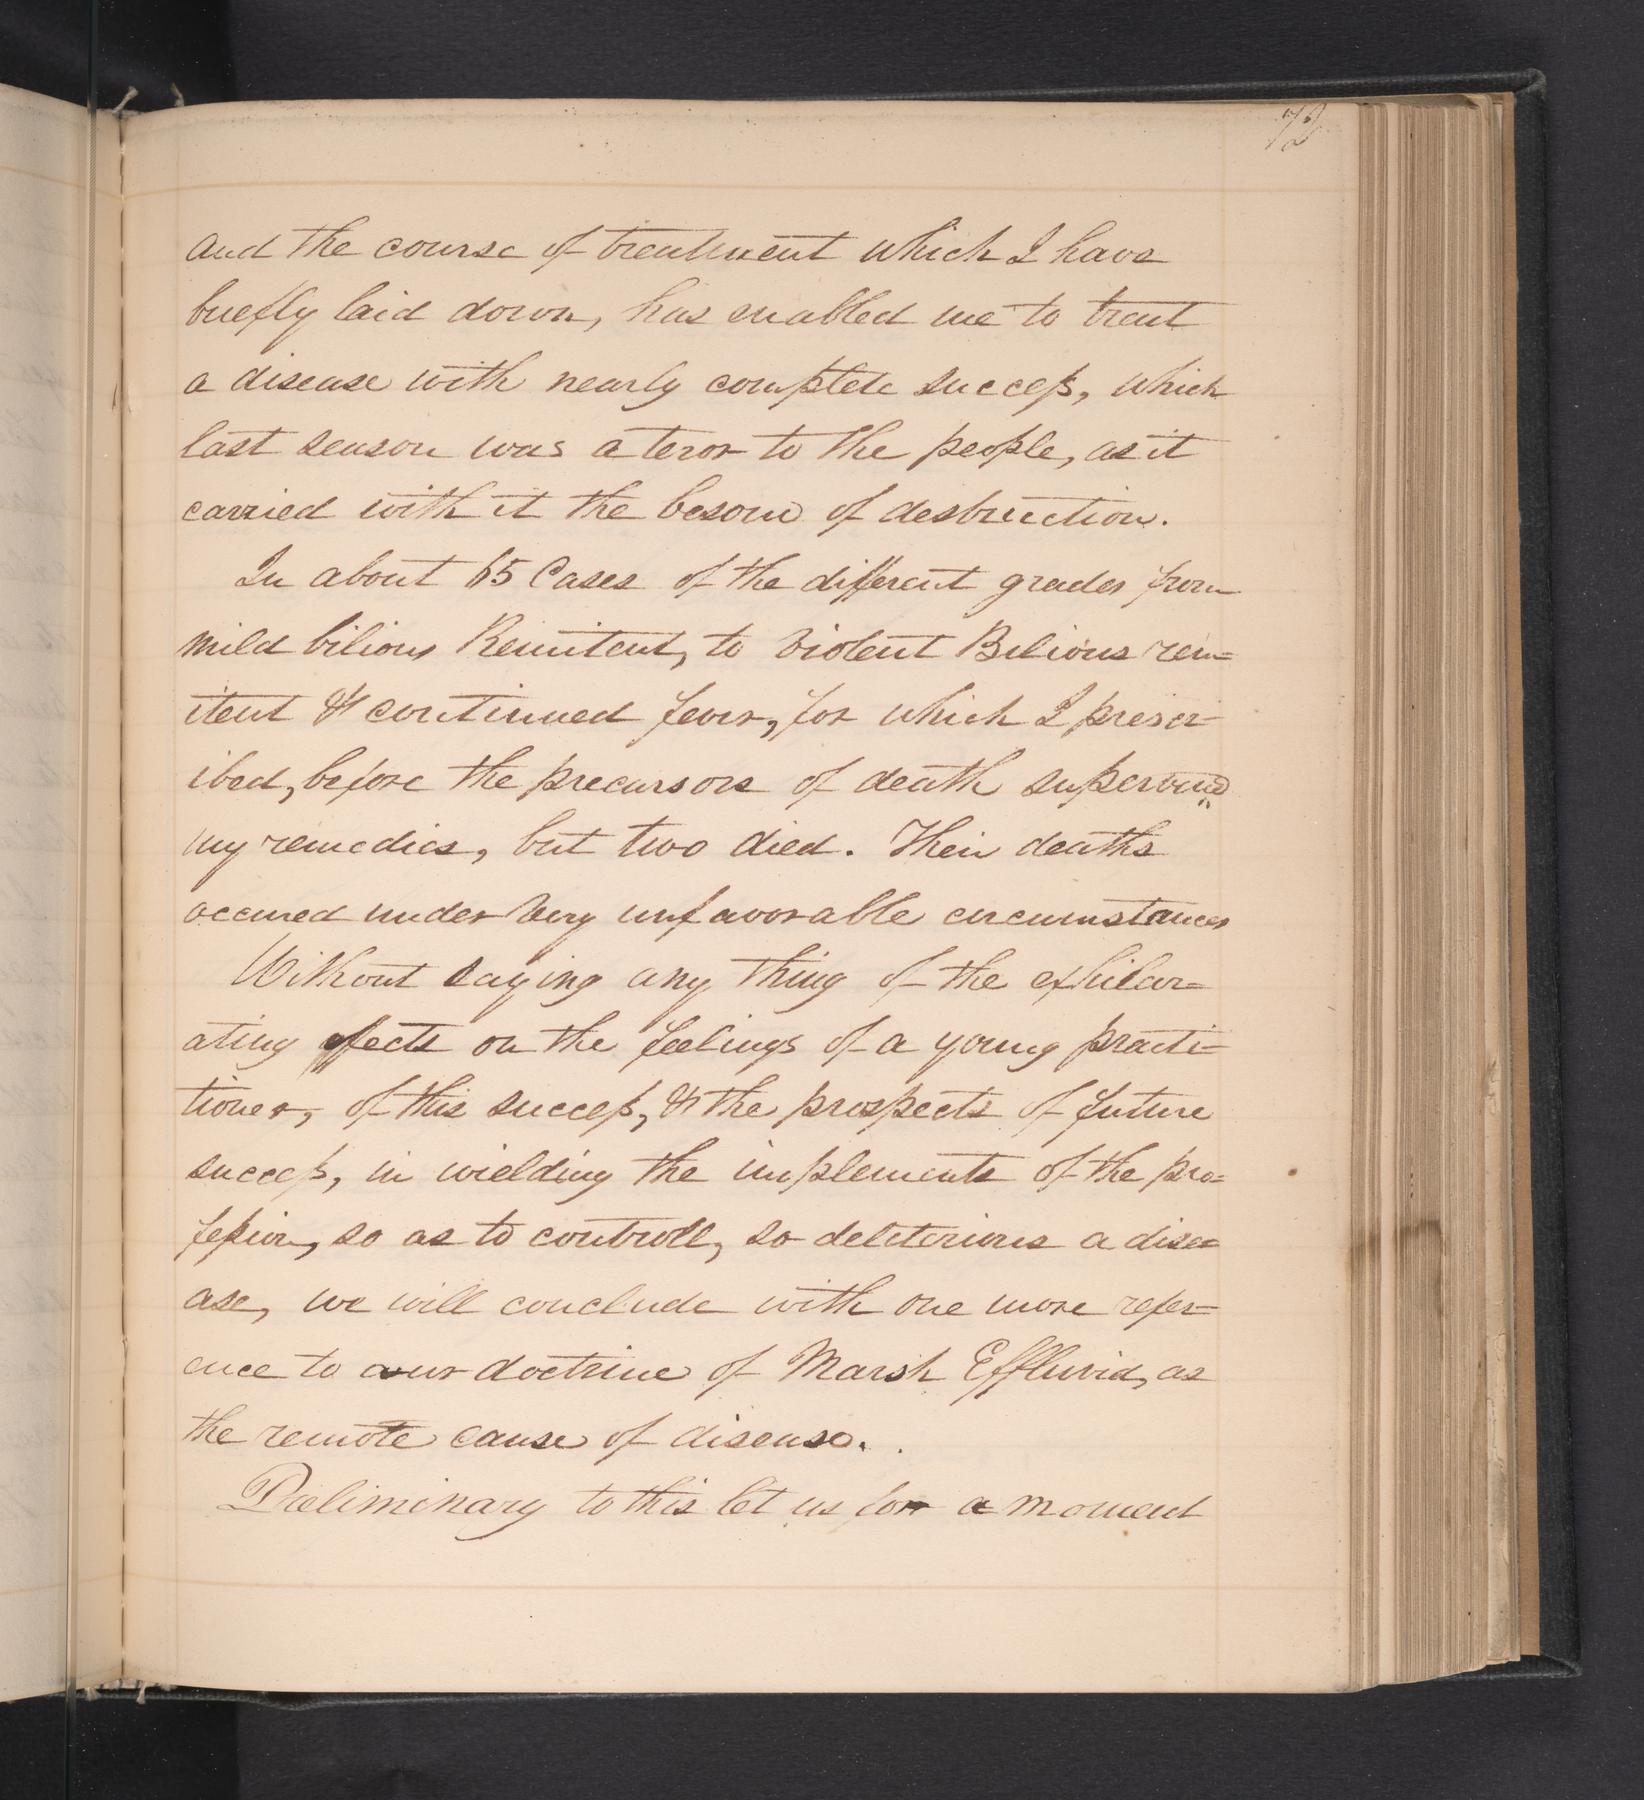 72
and the course of treatment which I have
briefly laid down, has enabled me to treat
a disease with nearly complete success, which
last season was a teror to the people, as it
carried with it the besom of destruction.
In about 65 Cases of the different grades from
mild bilious Remitent, to violent Bilious rem=
itent & continued fever, for which I prescr=
ibed, before the precursors of death supervened
my remedies, but two died. Their deaths
occured under very unfavorable circumstances
Without saying any thing of the exhilar=
ating effects on the feelings of a young practi=
tioner, of this success, & the prospects of future
success, in wielding the implements of the pro=
fession, so as to controll, so deleterious a dise=
ase, we will conclude with one more refer=
ence to our doctrine of Marsh Effluvia, as
the remote cause of disease.
Preliminary to this let us for a moment